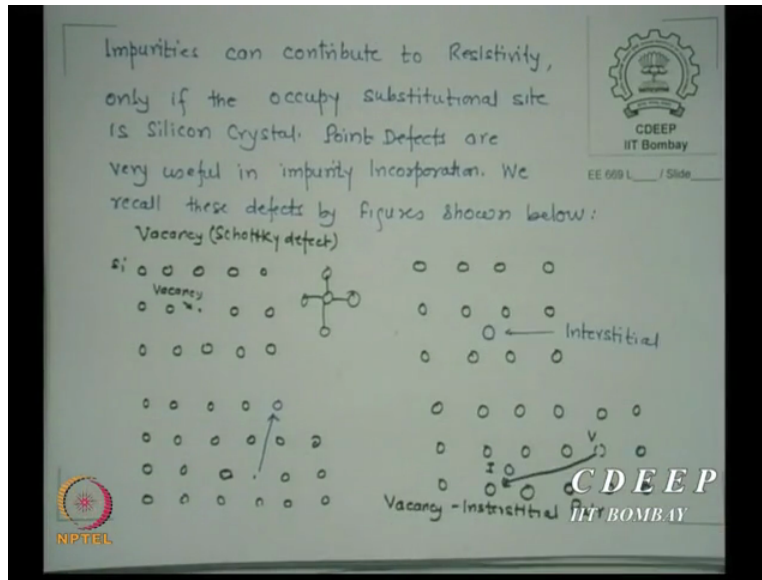 Impurities can contribute to Resistivity,
only if the occupy substitutional site
is Silicon Crystal. Point Defects are
very useful in impurity Incorporation. We
recall these defects by figures shown below:
CDEEP
IIT Bombay
EE 669 L____ / Slide____
Vacancy (Schottky defect)
Si
Vacancy
Interstitial
V
I
Vacancy - Insterstitial
CDEEP
IIT BOMBAY
NPTEL